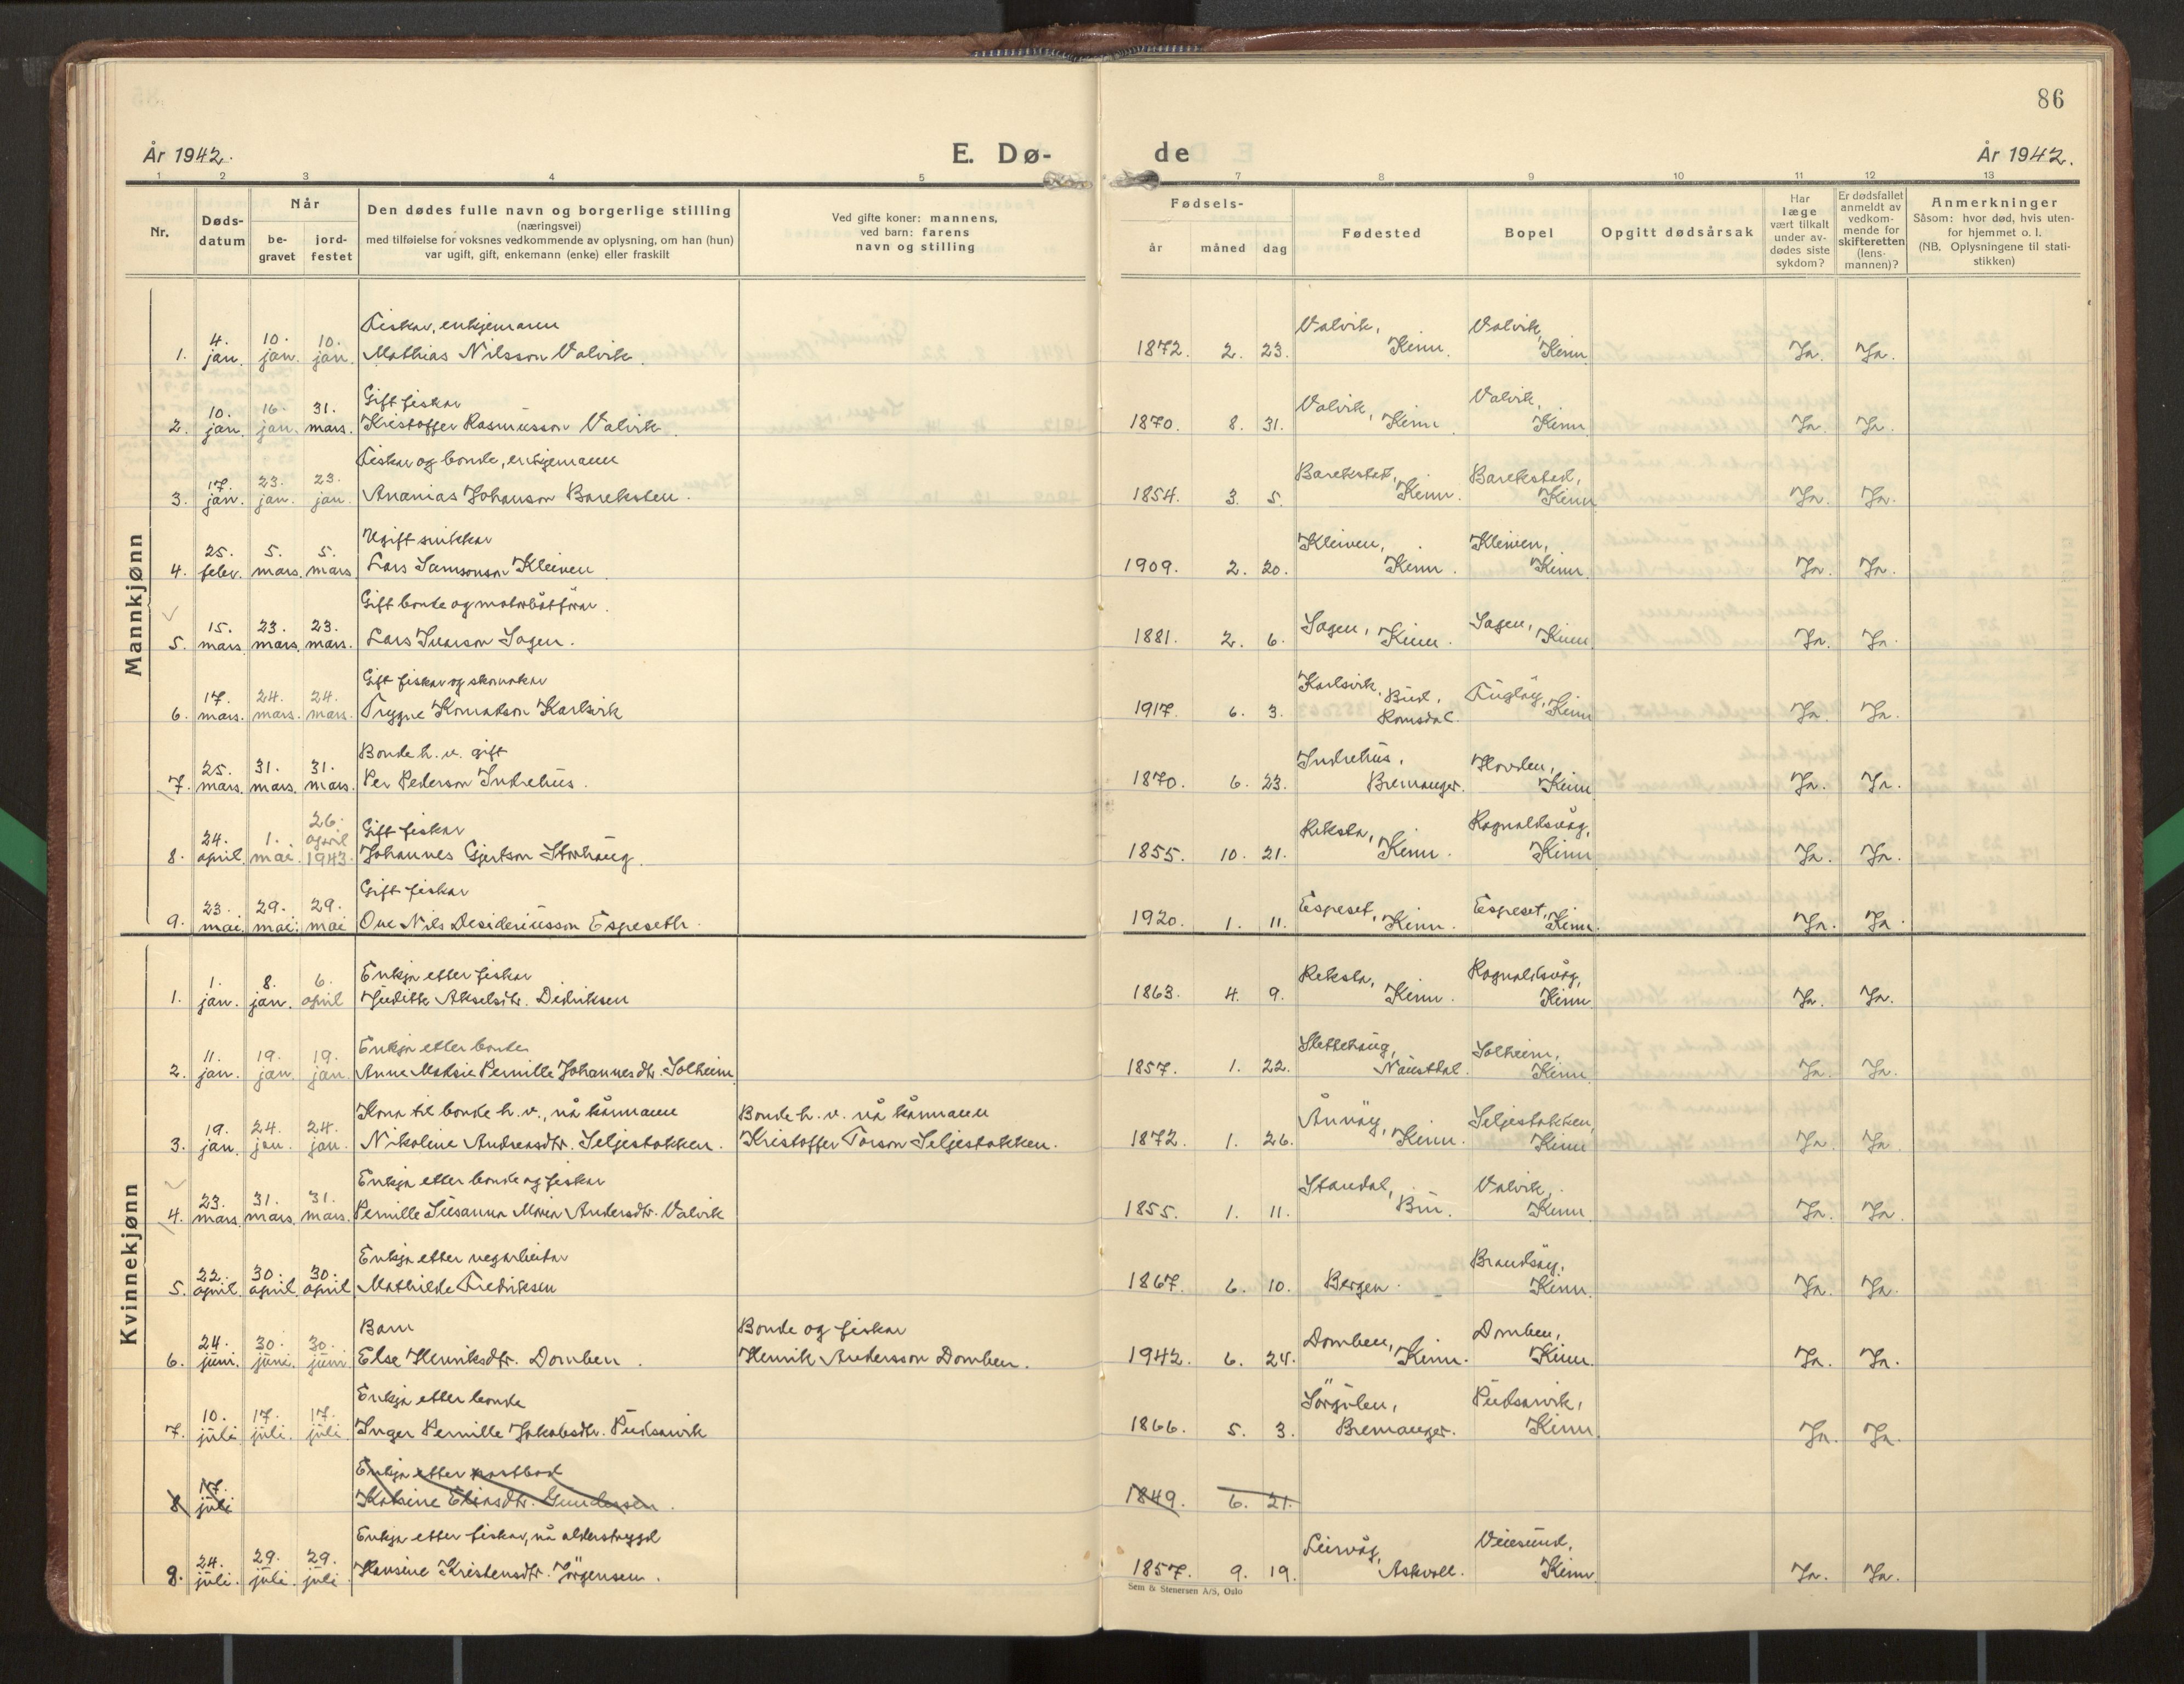 86
År 1942.
E. Dø-
de
År 1942.
1 2 3 4 5 7 8 9 10 11 12 13
Nr.
Døds-
datum
Når
be-
gravet
jord-
festet
Den dødes fulle navn og borgerlige stilling
(næringsvei)
med tilføielse for voksnes vedkommende av oplysning, om han (hun)
var ugift, gift, enkemann (enke) eller fraskilt
Ved gifte koner: mannens,
ved barn: farens
navn og stilling
Fødsels-
år måned dag
Fødested
Bopel
Opgitt dødsårsak
Har
læge
vært tilkalt
under av-
dødes siste
sykdom?
Er dødsfallet
anmeldt av
vedkom-
mende for
skifteretten
(lens-
mannen)?
Anmerkninger
Såsom: hvor død, hvis uten-
for hjemmet o. l.
(NB. Oplysningene til stati-
stikken)
Mannkjønn
4. 10. 10. Fiskar, enkjemann Valvik, Valvik,
1. jan. jan. jan. Mathias Nilsson Valvik. 1872. 2. 23. Kinn. Kinn Ja. Ja.
10. 16. 31. Gift fiskar Valvik, Valvik,
2. jan. jan. mars. Kristoffer Rasmusson Valvik. 1870. 8. 31. Kinn Kinn Ja. Ja.
17. 23. 23. Fiskar og bonde, enkjemann Barekstad, Barekstad,
3. jan. jan. jan. Ananias Johanson Bareksten. 1854. 3. 5. Kinn. Kinn Ja. Ja.
25. 5. 5. Ugift snikkar Kleiven, Kleiven,
4. febr. mars. mars Lars Samsonson Kleiven 1909. 2. 20. Kinn. Kinn. Ja. Ja.
15. 23. 23. Gift bonde og motorbåtførar. Sagen, Sagen,
5. mars. mars. mars. Lars Ivarson Sagen. 1881. 2. 6. Kinn. Kinn Ja. Ja.
17. 24. 24. Gift fiskar og skomakar Karlsvik, Bud, Fugløy,
6. mars. mars. mars. Trygve Konradson Karlsvik 1917. 6. 3. Romsdal. Kinn Ja. Ja.
25. 31. 31. Bonde h. v. gift Indrehus, Hovden,
7. mars. mars. mars. Per Pederson Indrehus. 1870. 6. 23. Bremanger. Kinn Ja. Ja.
24. 1. 26. april Gift fiskar Reksta, Rognaldsvåg,
8. april. mai. 1943. Johannes Gjertson Storhaug. 1855. 10. 21. Kinn. Kinn Ja. Ja.
23. 29. 29. Gift fiskar Espeset, Espeset,
9. mai. mai. mai Ove Nils Desideriusson Espeseth. 1920. 1. 11. Kinn. Kinn. Ja. Ja.
Kvinnekjønn
1. 8. 6. Enkja etter fiskar Reksta, Rognaldsvåg,
1. jan. jan. april Juditte Akselsdtr. Didriksen 1863. 4. 9. Kinn. Kinn Ja. Ja.
11. 19. 19. Enkja etter bonde Slettehaug, Solheim,
2. jan. jan. jan. Anne Maksie Pernille Johannesdtr. Solheim 1857. 1. 22. Naustdal. Kinn Ja. Ja.
19. 24. 24. Kona til bonde h. v., nå kårmann Bonde h. v. nå kårmann Ånnøy, Seljestokken,
3. jan. jan. jan. Nikoline Andreasdtr. Seljestokken. Kristoffer Torson Seljestokken. 1872. 1. 26. Kinn. Kinn Ja. Ja.
23. 31. 31. Enkja etter bonde og fiskar Standal, Valvik,
4. mars. mars. mars. Pernille Susanna Maria Andersdtr. Valvik 1855. 1. 11. Bru. Kinn Ja. Ja.
22. 30. 30. Enkja etter vegarbeidar Brandsøy,
5. april. april. april Mathilde Fredriksen 1867. 6. 10. Bergen. Kinn. Ja. Ja.
24. 30. 30. Barn Bonde og fiskar Domben, Domben,
6. juni. juni. juni. Else Henriksdtr. Domben. Henrik Andersson Domben. 1942. 6. 24. Kinn. Kinn. Ja. Ja.
10. 17. 17. Enkja etter bonde Sørgulen, Pudsarvik,
7. juli. juli. juli. Inger Pernille Jakobsdtr. Pudsarvik 1866. 5. 3. Bremanger. Kinn Ja. Ja.
17. Enkja etter postbod
8 juli Katrine Eliasdtr. Gundersen. 1849. 6. 21.
24. 29. 29. Enkja etter fiskar, nå alderstrygd Leirvåg, Veiesund,
8. juli. juli. juli Hansine Kristensdtr. Jørgensen. 1857. 9. 19. Askvoll. Kinn. Ja. Ja.
Sem & Stenersen A/S, Oslo